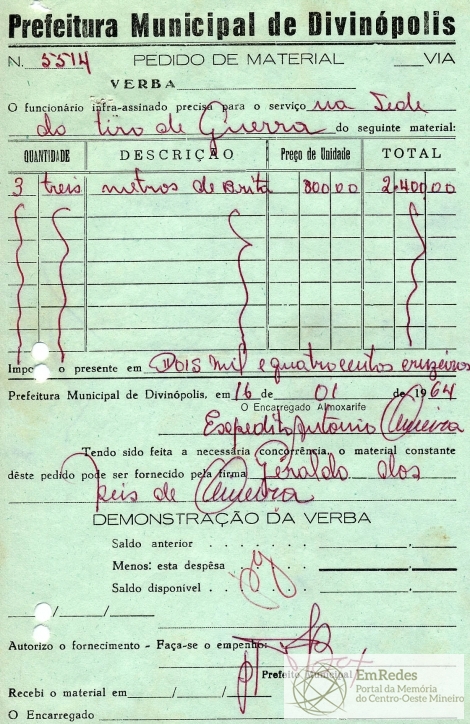 Prefeitura Municipal de Divinópolis
N. 5514 PEDIDO DE MATERIAL ____VIA
VERBA
O funcionário infra-assinado precisa para o serviço na Sede
do tiro de Guerra do seguinte material:
QUANTIDADE DESCRIÇÃO Preço de Unidade TOTAL
3 treis metros de Brita 800,00 2.400,00
Impo o presente em Dois mil e quatrocentos cruzeiros
Prefeitura Municipal de Divinópolis, em 16 de 01 de 1964
O Encarregado Almoxarife
Expedito Antonio Oliveira
Tendo sido feita a necessária concorrência, o material constante
dêste pedido pode ser fornecido pela firma Geraldo dos
Reis de Oliveira
DEMONSTRAÇÃO DA VERBA
Saldo anterior
Menos: esta despêsa
Saldo disponivel
____/____/____
Autorizo o fornecimento - Faça-se o empenho
Prefeito Municipal
Recebi o material em____/____/____
O Encarregado
EmRedes
Portal da Memória
do Centro-Oeste Mineiro